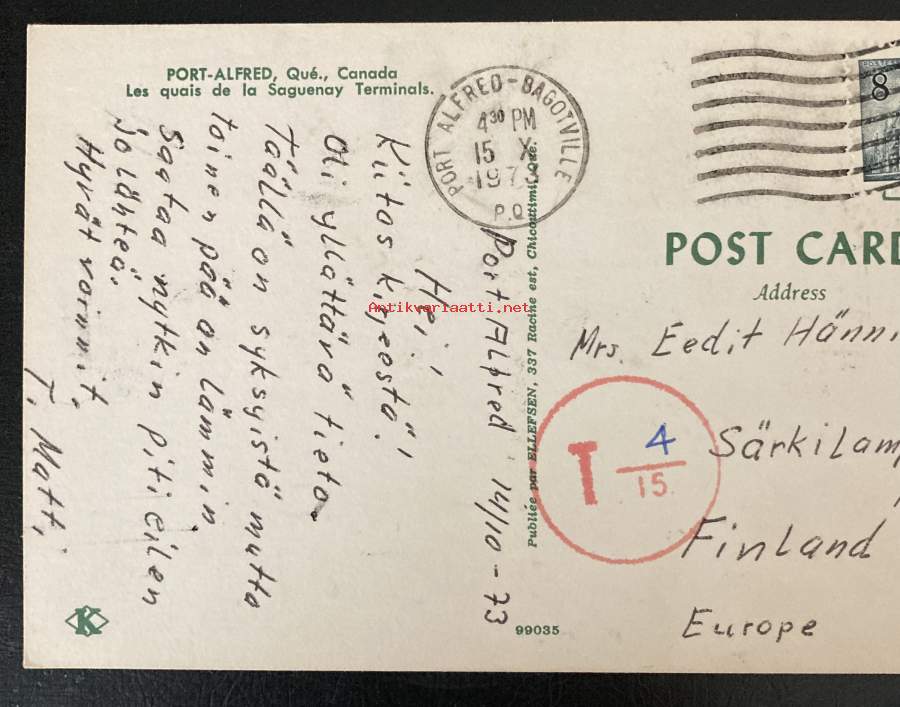 PORT-ALFRED, Qué., Canada
Les quais de la Saguenay Terminals.
PORT ALFRED-BAGOTVILLE
4 30 PM
15 X
1973
P.Q.
8
Port Alfred 14/10-73
Hei!
Kiitos kirjeestä!
Oli yllättävä tieto.
Täällä on syksyistä mutta
toinen pää on lämmin,
Saataa nytkin piti eilen
jo lähteä.
Hyvät voinnit,
T, Matti
Publiée par ELLEFSEN, 337 Racine est, Chicoutimi, Qué.
99035
K
POST CARD
Address
Mrs. Eedit Hänni
Särkilam
Finland
Europe
T 4
15
Antikvariaatti.net